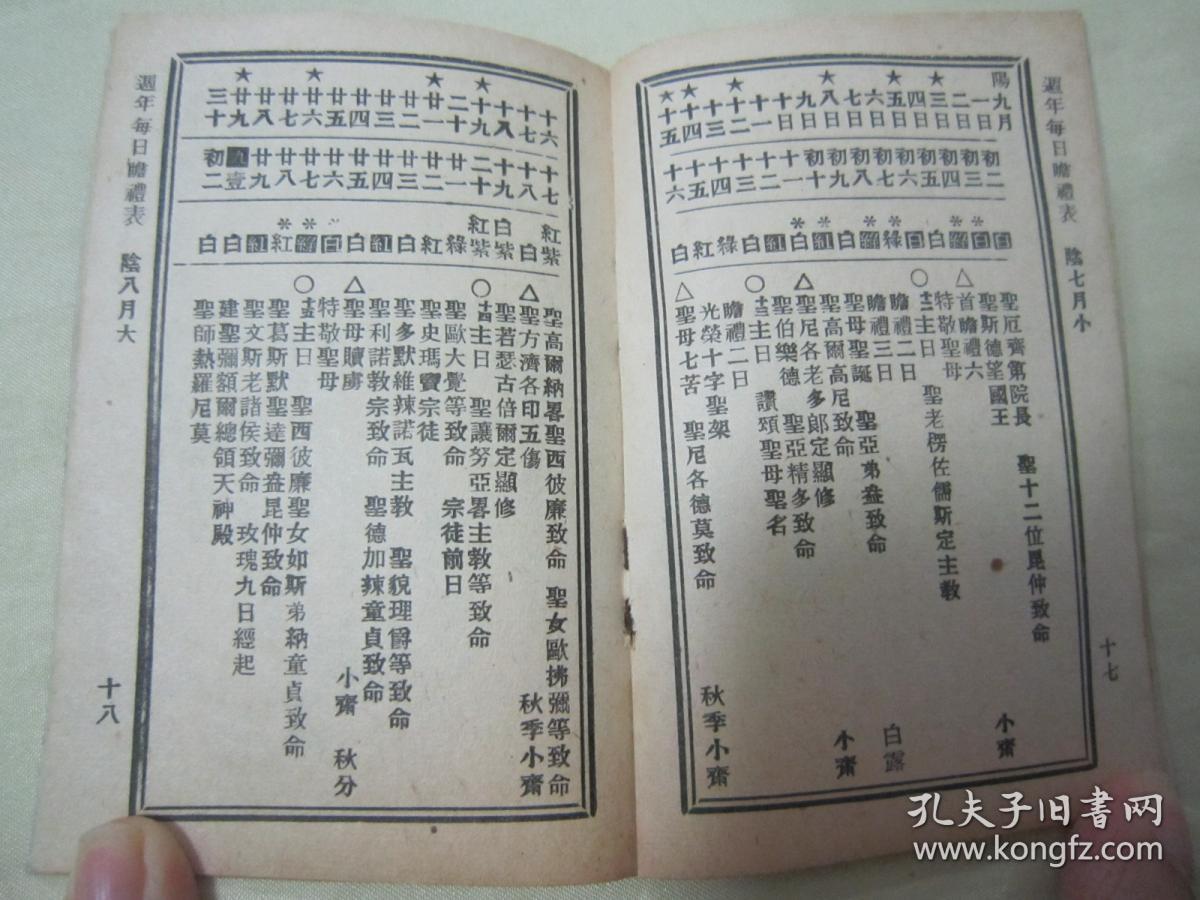 週年每日瞻禮表 陰七月小 十七
陽九月一日 初二 白 聖厄齊第院長 聖十二位昆仲致命
二日 初三 白 聖斯德望國王
★三日 初四 綠 △首瞻禮六 小齋
四日 初五 白 特敬聖母
★五日 初六 白 ○十二主日 聖老楞佐儒斯定主教
六日 初七 綠 瞻禮二日
七日 初八 綠 瞻禮三日
★八日 初九 白 聖母聖誕 聖亞弟盎致命 白露
九日 初十 紅 聖高爾高尼致命
十日 十一 白 △聖尼各老多郎定顯修 小齋
十一 十二 紅 聖伯樂德 聖亞精多致命
★十二 十三 白 ○十三主日 讚頌聖母聖名
十三 十四 綠 瞻禮二日
★十四 十五 紅 光榮十字聖架
★十五 十六 白 △聖母七苦 聖尼各德莫致命 秋季小齋
十六 十七 紅紫 聖高爾納畧聖西彼廉致命 聖女歐拂彌等致命
十七 十八 白 △聖方濟各印五傷 秋季小齋
十八 十九 白紫 聖若瑟古倍爾定顯修
★十九 二十 紅紫 ○十四主日 聖讓努亞畧主教等致命
二十 廿一 綠 聖歐大覺等致命 宗徒前日
★廿一 廿二 紅 聖史瑪竇宗徒
廿二 廿三 白 聖多默維辣諾瓦主教 聖貌理爵等致命
廿三 廿四 紅 聖利諾教宗致命 聖德加辣童貞致命
廿四 廿五 白 △聖母贖虜 小齋 秋分
廿五 廿六 白 特敬聖母
★廿六 廿七 綠 ○十五主日 聖西彼廉聖女如斯弟納童貞致命
廿七 廿八 紅 聖葛斯默聖達彌盎昆仲致命
廿八 廿九 紅 聖文斯老諸侯致命 玫瑰九日經起
★廿九 九壹 白 建聖彌額爾總領天神殿
三十 初二 白 聖師熱羅尼莫
週年每日瞻禮表 陰八月大 十八
孔夫子旧书网
www.kongfz.com